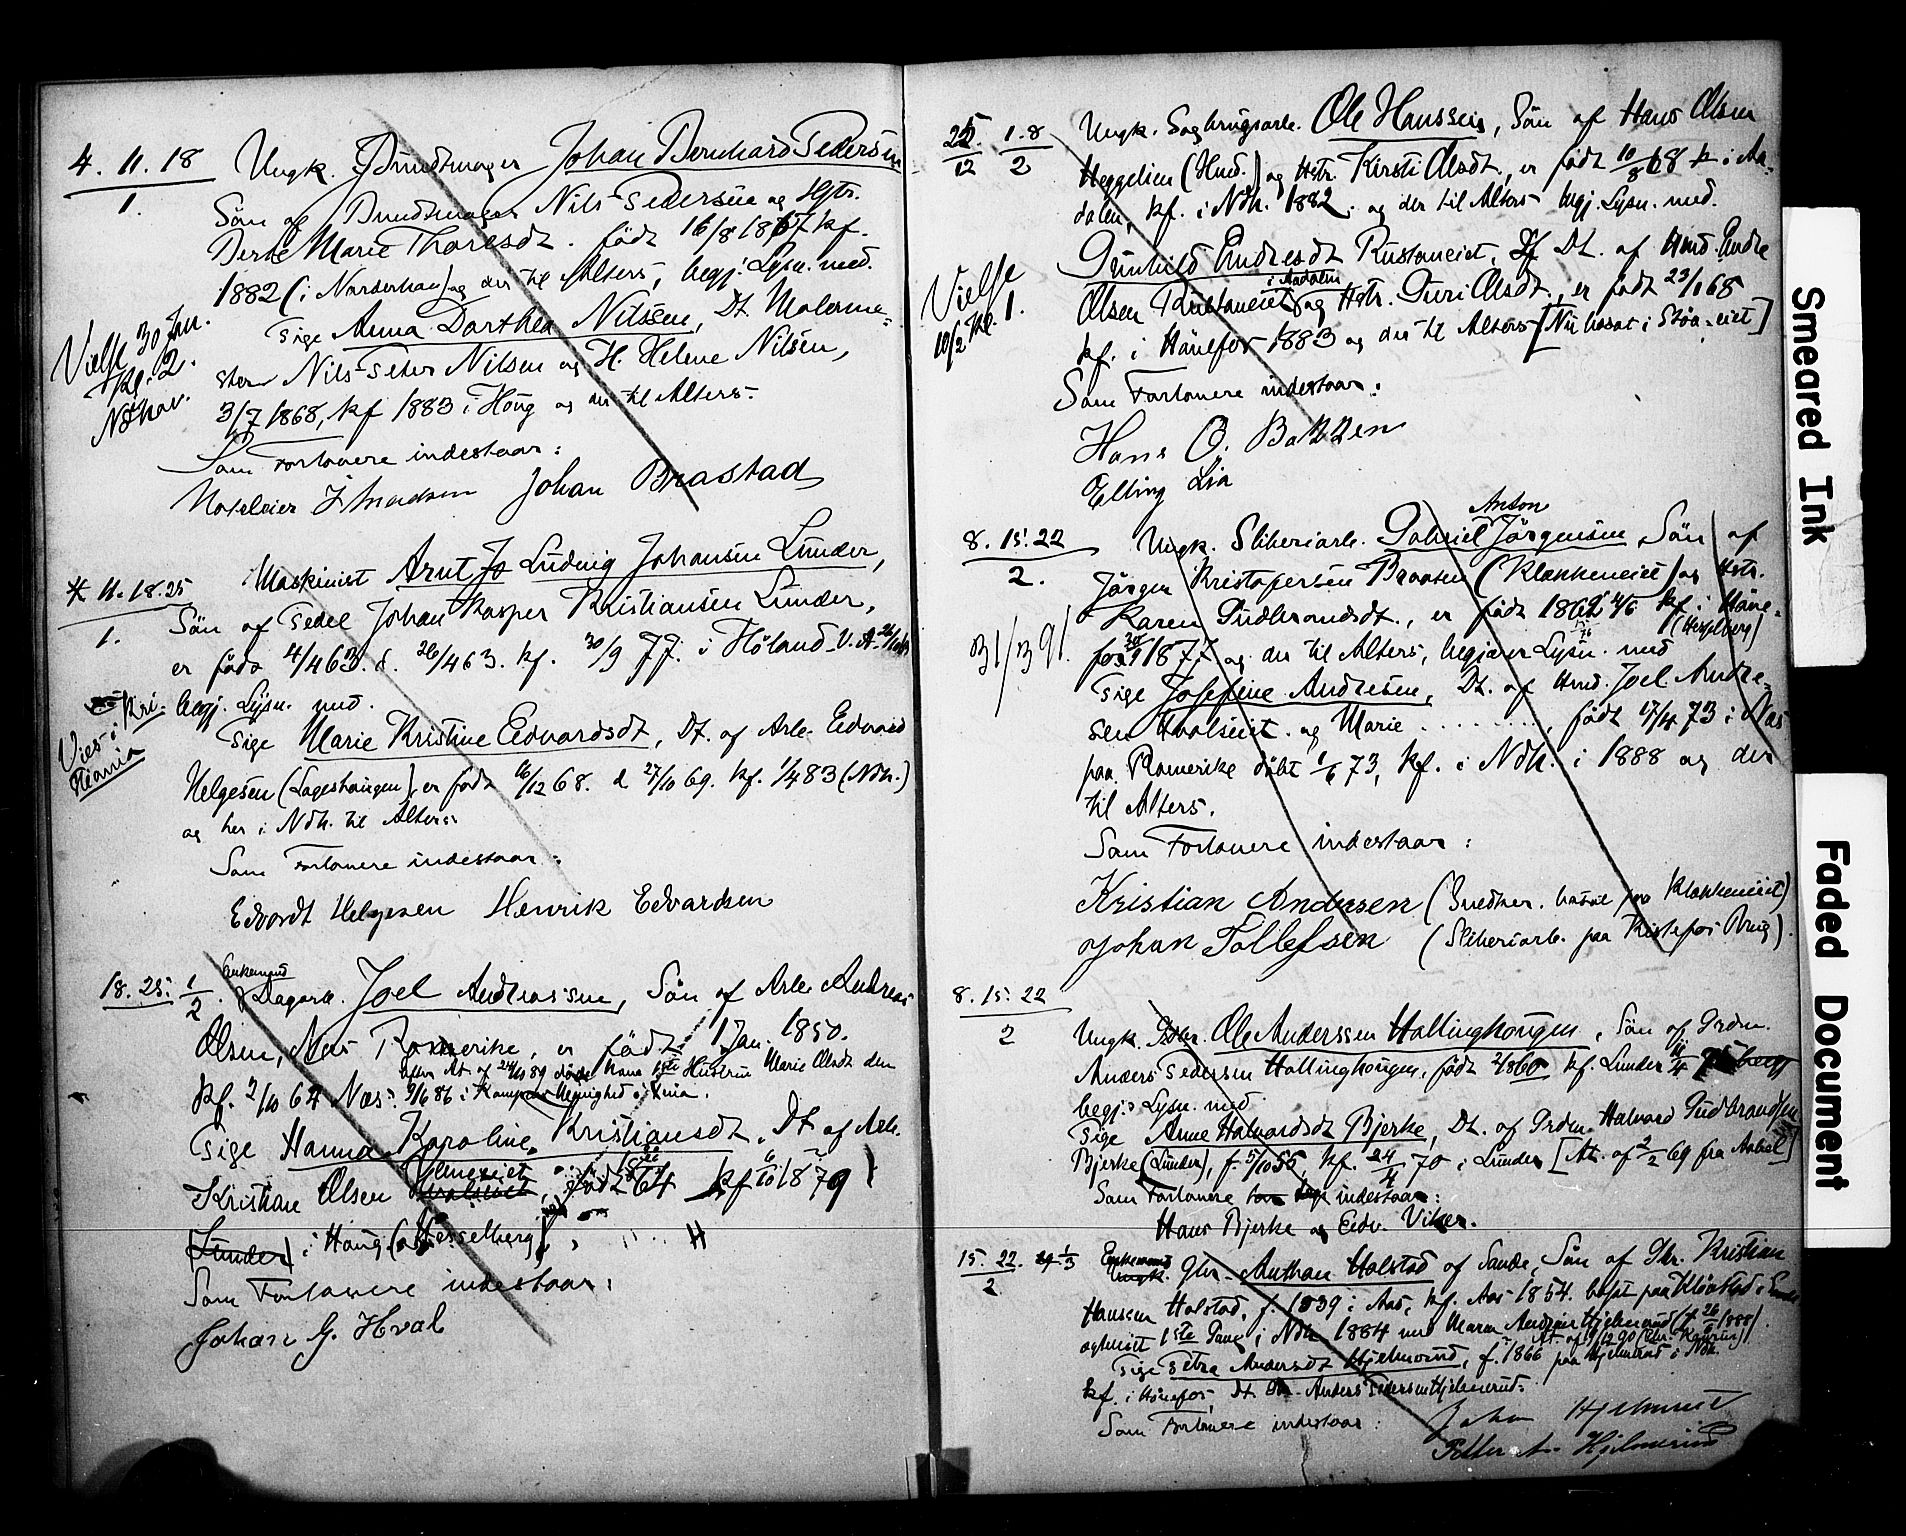 4. 11. 18
1.
Ungk. Buntmager Johan Bernhard Pedersen
Søn af Buntmager Nils Pedersen og Hstr.
Berte Marie Thoresdt. født 16/8 1867 kf.
1882 (i Norderhov) og der til Alters, begj. Lysn. med
Pige Anna Dorthea Nilssen, Dt. Malerme-
ster Nils Peter Nilsen og H. Helene Nilsen,
3/7 1868, kf 1883 i Houg og der til Alters.
Som Forlovere indestaar:
Johan Brastad
Vielse 30 Jan.
Kl. 2.
Ndhov.
11. 18. 25
1.
Maskinist Arnt Ludvig Johansen Lunder,
Søn af Pedel Johan Kasper Kristiansen Lunder,
er født 4/4 63. d. 26/4 63. kf. 30/9 77. i Høland
begj. Lysn. med.
Pige Marie Kristine Edvardsdt, Dt. af Arb. Edvard
Helgesen (Lageshaugen), er født 16/12 68. d 27/10 69. kf. 1/4 83 (Ndh.)
og her i Ndh. til Alters.
Som Forlovere indestaar:
Edvardt Helgesen Henrik Edvardsen
Vies i Kri-
stiania
18. 25. 1/2.
Enkemand
Dagarb. Joel Andreassen, Søn af Arb. Andreas
Olsen, Næs Romerike, er født 1 Jan. 1850.
kf. 2/10 64 Næs. Hustru Marie Olsdt den
Pige Hanna Karoline Kristiansdt, Dt af Arb.
Kristian Olsen født 64 kf 1879
(Lunder) i Houg (Hesselberg)
Som Forlovere indestaar:
Johan G. Hval
25/12 1.8/2
Ungk. Sagbrugsarb. Ole Hanssen, Søn af Hans Olsen
Heggelien (Hmd.) og Hstr. Kirsti Olsdt., er født 10/8 68 i Aa-
dalen, kf. i Ndh. 1882. og der til Alters begj. Lysn. med.
Gunhild Endresdt Rustaneiet, Dt. af Hmd. Endre
Olsen Rustaneiet i Aadalen og Hstr. Guri Olsdt, er født 23/1 68
kf. i Hønefos 1883 og der til Alters [Nu bosat i Støa-eiet]
Som Forlovere indestaar:
Hans O. Bakken
Elling Lia
Vielse
10/2 Kl. 1.
8. 15. 22
2.
Anton
Ungk. Sliberiarb. Gabriel Jörgensen, Søn af
Jörgen Kristofersen Braaten (Klækkeneiet) og Hstr.
Karen Gudbrandsdt., er født 1862 kf. i Høne-
(Hesselberg)
fos 1877 og der til Alters, begjærer Lysn. med
Pige Josefine Andresen, Dt. af Hmd. Joel Andre-
sen Hvalseiet. og Marie . . . . . . . . , født 17/4 73 i Næs
paa Romerike döbt 1/6 73, kf. i Ndh. i 1888 og der
til Alters.
Som Forlovere indestaar:
Kristian Andersen (Snedker. bosat paa Klækkeneiet)
Johan Tollefsen (Sliberiarb. paa Kistefos Brug).
31/3 91.
8. 15. 22
2
Ungk. Ole Anderssen Hallinghougen, Søn af Grdm.
Anders Pedersen Hallinghougen, født 2/8 60 kf. Lunder
begj. Lysn. med
Pige Anne Halvardsdt Bjerke, Dt. af Grdm. Halvard Gudbrandsen
Bjerke (Lunder), f. 5/10 55, kf. 24/4 70 i Lunder [At. af 2/2 69 fra Aadal]
Som Forlovere indestaar:
Hans Bjerke og Edv. Viker.
15. 22. 1/3
2
Enkemand
Ungk. Gbr. Anthon Holstad af Sande, Søn af Gbr. Kristian
Hansen Holstad, f. 1839 i Aas, kf. Aas 1854. bosat paa
1ste Gang i Ndh 1884 med Maren Andersdt Hjelmerud (d 1888).
Pige Petra Andersdt Hjelmerud, f. 1866 paa Hjelmerud i Ndh.
kf. i Hønefos, Dt. Gbr. Anders Pedersen Hjelmerud.
Som Forlovere indestaar:
Johan Hjelmerud
Petter A. Hjelmerud
Smeared Ink
Faded Document